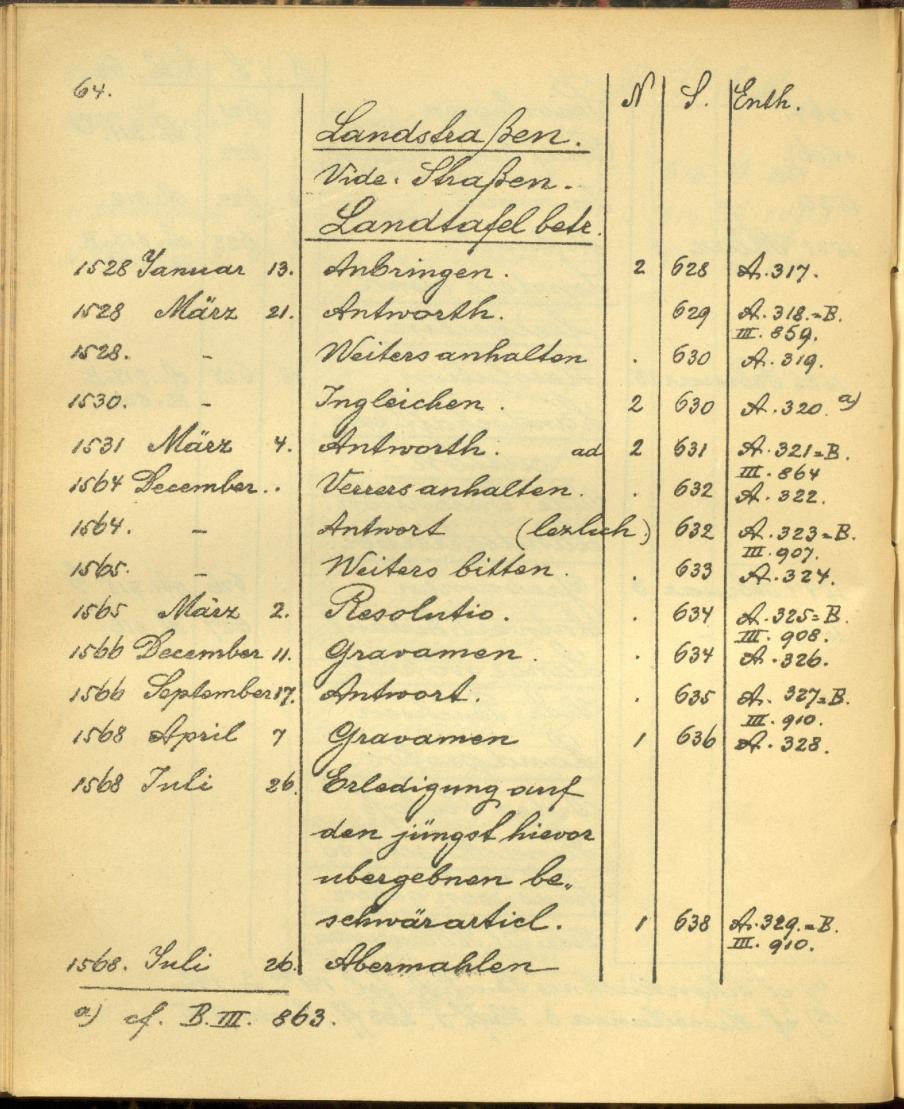 64. N S. Enth.
Landstraßen.
Vide. Straßen.
Landtafel betr.
1528 Januar 13. Anbringen. 2 628 A. 317.
1528 März 21. Antworth. 629 A. 318.=B.
III. 859.
1528. - Weiters anhalten . 630 A. 319.
1530. - Ingleichen. 2 630 A. 320. a)
1531 März 4. Antworth. ad 2 631 A. 321=B.
III. 864
1564 December.. Verrers anhalten. . 632 A. 322.
1564. - Antwort (lezlich.) 632 A. 323=B.
III. 907.
1565. - Weiters bitten. . 633 A. 324.
1565 März 2. Resolutio. . 634 A. 325=B.
III. 908.
1566 December 11. Gravamen. . 634 A. 326.
1566 September 17. Antwort. . 635 A. 327=B.
III. 910.
1568 April 7 Gravamen 1 636 A. 328.
1568 Juli 26. Erledigung auf
den jüngst hievor
ubergebnen be„
schwärarticl. 1 638 A. 329.=B.
III. 910.
1568. Juli 26. Abermahlen
a) cf. B. III. 863.